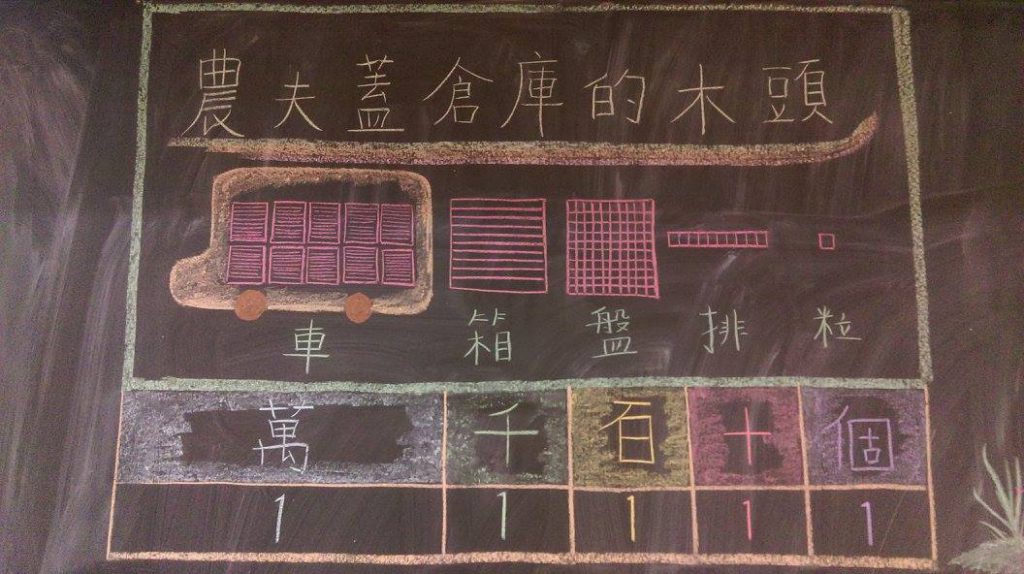 農夫蓋倉庫的木頭
車 箱 盤 排 粒
萬 千 百 十 個
1 1 1 1 1